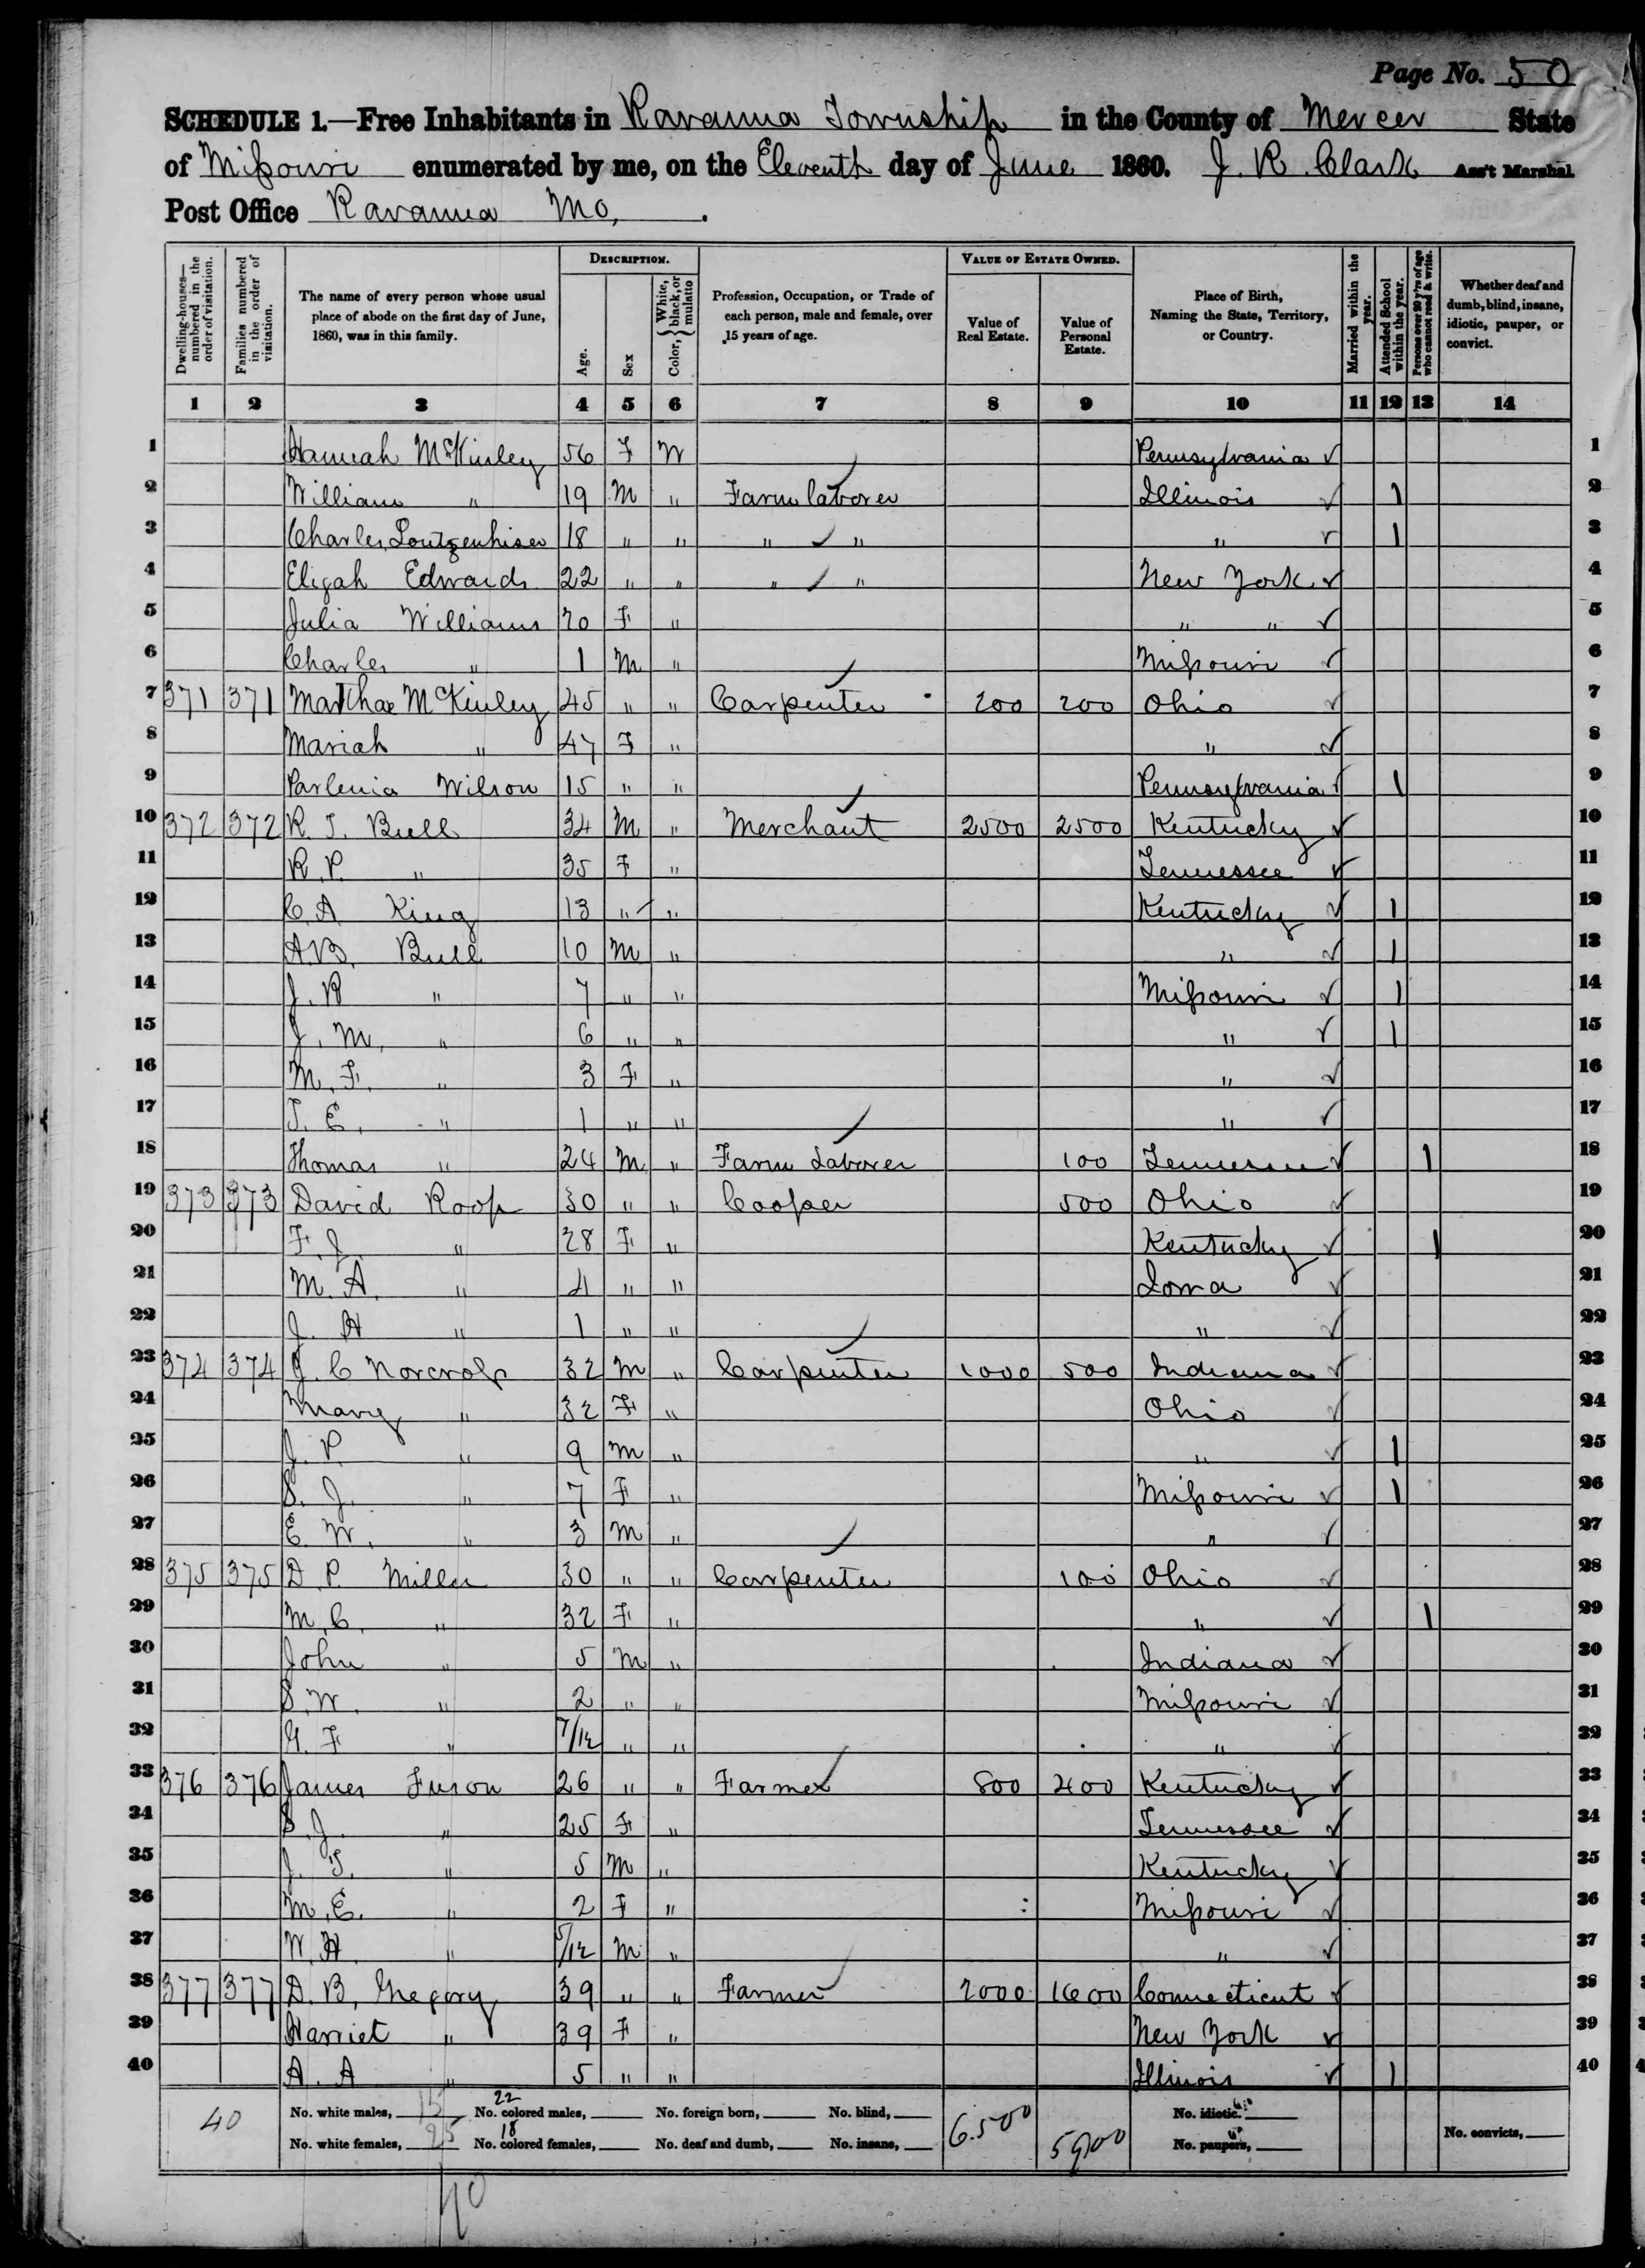 Page No. 50
SCHEDULE 1.—Free Inhabitants in Ravanna Township in the County of Mercer State
of Missouri enumerated by me, on the Eleventh day of June 1860. J. R. Clark Ass't Marshal
Post Office Ravanna Mo.
Dwelling-houses—numbered in the order of visitation.
Families numbered in the order of visitation.
The name of every person whose usual place of abode on the first day of June, 1860, was in this family.
DESCRIPTION.
Age.
Sex
Color, { White, black, or mulatto
Profession, Occupation, or Trade of each person, male and female, over 15 years of age.
VALUE OF ESTATE OWNED.
Value of Real Estate.
Value of Personal Estate.
Place of Birth, Naming the State, Territory, or Country.
Married within the year.
Attended School within the year.
Persons over 20 y'rs of age who cannot read & write.
Whether deaf and dumb, blind, insane, idiotic, pauper, or convict.
1 2 3 4 5 6 7 8 9 10 11 12 13 14
1 Hannah McKinley 56 F W Pennsylvania 1
2 William " 19 M " Farm laborer Illinois 1 2
3 Charles Loutzenhiser 18 " " " " " 1 3
4 Elijah Edwards 22 " " " " New York 4
5 Julia Williams 20 F " " " 5
6 Charles " 1 M " Missouri 6
7 371 371 McKinley 45 " " Carpenter 200 200 Ohio 7
8 Mariah " 47 F " " 8
9 Parlenia Wilson 15 " " Pennsylvania 1 9
10 372 372 R. T. Bull 34 M " Merchant 2500 2500 Kentucky 10
11 R. P. " 35 F " Tennessee 11
12 C. A King 13 " " Kentucky 1 12
13 A. B. Bull 10 M " " 1 13
14 J. R " 7 " " Missouri 1 14
15 J. M. " 6 " " " 1 15
16 M. F. " 3 F " " 16
17 T. E. " 1 " " " 17
18 Thomas " 24 M " Farm Laborer 100 Tennessee 1 18
19 373 373 David Roop 30 " " Cooper 500 Ohio 19
20 F. J. " 28 F " Kentucky 1 20
21 M. A. " 4 " " Iowa 21
22 J. H " 1 " " " 22
23 374 374 J. C Norcross 32 M " Carpenter 1000 500 Indiana 23
24 Mary " 32 F " Ohio 24
25 J. P. " 9 M " " 1 25
26 S. J. " 7 F " Missouri 1 26
27 E. W. " 3 M " " 27
28 375 375 D. P. Miller 30 " " Carpenter 100 Ohio 28
29 M. C. " 32 F " " 1 29
30 John " 5 M " Indiana 30
31 S. W. " 2 " " Missouri 31
32 G. F " 7/12 " " " 32
33 376 376 James Fuson 26 " " Farmer 800 400 Kentucky 33
34 S. J. " 25 F " Tennessee 34
35 J. T. " 5 M " Kentucky 35
36 M. E. " 2 F " Missouri 36
37 W. H. " 5/12 M " " 37
38 377 377 D. B. Gregory 39 " " Farmer 2000 1600 Connecticut 38
39 Harriet " 39 F " New York 39
40 A. A " 5 " " Illinois 1 40
40
No. white males, 15 No. colored males, 22 No. foreign born, No. blind, 6500 No. idiotic.
No. white females, 25 No. colored females, 18 No. deaf and dumb, No. insane, 5900 No. paupers, No. convicts,
40